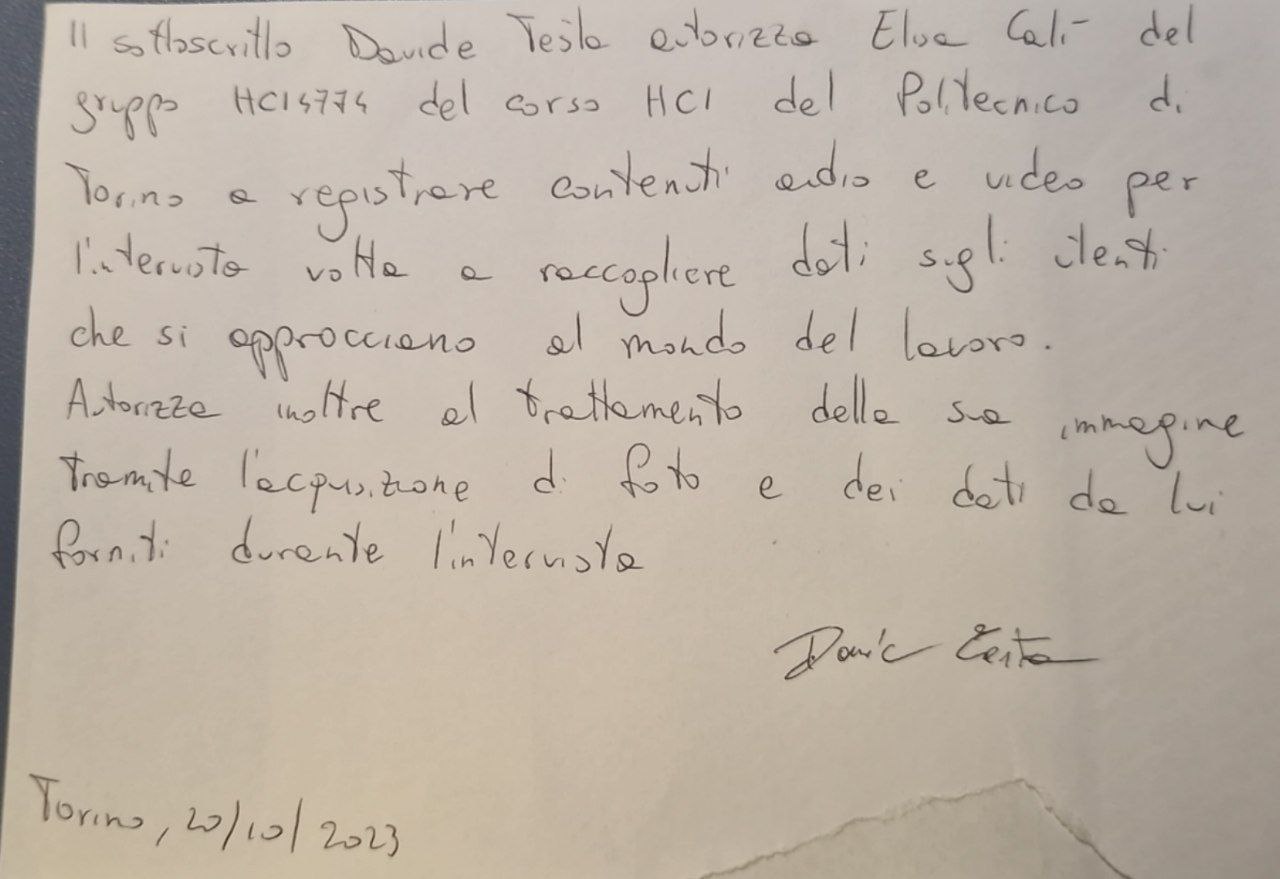 Il sottoscritto Davide Testa autorizza Elisa Calì del
gruppo HCI4774 del corso HCI del Politecnico di
Torino a registrare contenuti audio e video per
l'intervista volta a raccogliere dati sugli utenti
che si approcciano al mondo del lavoro.
Autorizza inoltre al trattamento della sua immagine
tramite l'acquisizione di foto e dei dati da lui
forniti durante l'intervista
Davide Testa
Torino, 20/10/2023